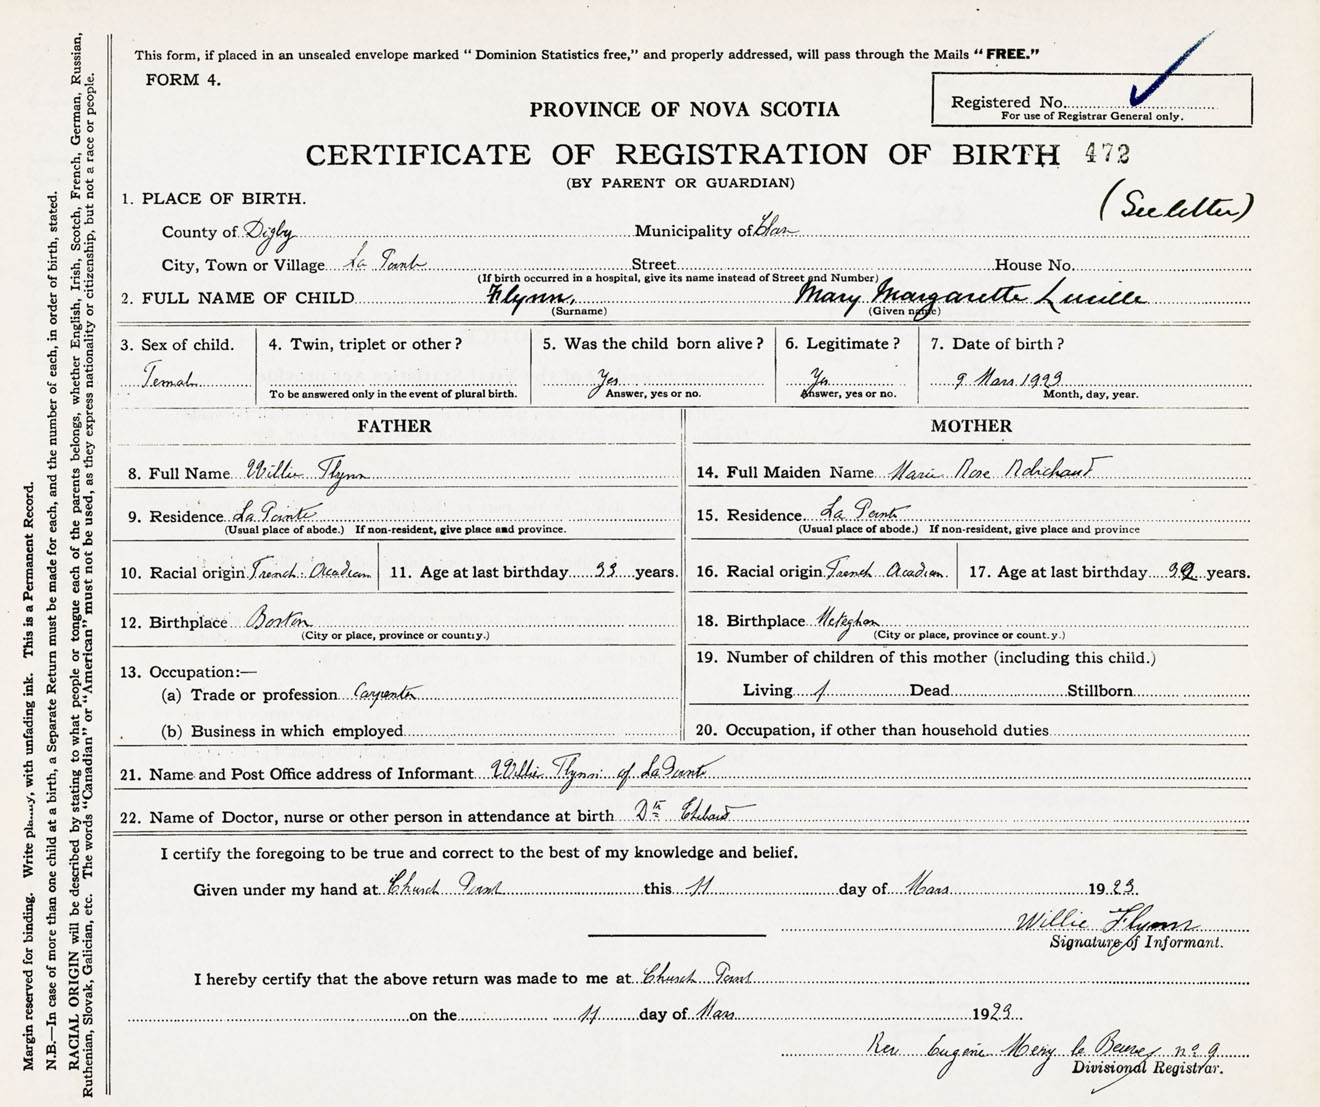 This form, if placed in an unsealed envelope marked “ Dominion Statistics free,” and properly addressed, will pass through the Mails “ FREE.”
FORM 4.
Registered No.
For use of Registrar General only.
PROVINCE OF NOVA SCOTIA
CERTIFICATE OF REGISTRATION OF BIRTH 472
(BY PARENT OR GUARDIAN)
(See letter)
1. PLACE OF BIRTH.
County of Digby Municipality of Clare
City, Town or Village La Pointe Street House No.
(If birth occurred in a hospital, give its name instead of Street and Number)
2. FULL NAME OF CHILD Flynn, Mary Margarette Lucille
(Surname) (Given name)
3. Sex of child. 4. Twin, triplet or other ? 5. Was the child born alive ? 6. Legitimate ? 7. Date of birth ?
Female Yes Yes 9 Mars 1923
To be answered only in the event of plural birth. Answer, yes or no. Answer, yes or no. Month, day, year.
FATHER MOTHER
8. Full Name Willie Flynn 14. Full Maiden Name Marie Rose Robichaud
9. Residence La Pointe 15. Residence La Pointe
(Usual place of abode.) If non-resident, give place and province. (Usual place of abode.) If non-resident, give place and province
10. Racial origin French Acadian 11. Age at last birthday 33 years. 16. Racial origin French Acadian 17. Age at last birthday 32 years.
12. Birthplace Boston 18. Birthplace Meteghan
(City or place, province or country.) (City or place, province or count.y.)
19. Number of children of this mother (including this child.)
13. Occupation:—
(a) Trade or profession Carpenter Living 1 Dead Stillborn
(b) Business in which employed 20. Occupation, if other than household duties
21. Name and Post Office address of Informant Willie Flynn of La Pointe
22. Name of Doctor, nurse or other person in attendance at birth Dr
I certify the foregoing to be true and correct to the best of my knowledge and belief.
Given under my hand at Church Point this 11 day of Mars 1923.
Willie Flynn
Signature of Informant.
I hereby certify that the above return was made to me at Church Point
on the 11 day of Mars 1923
Rev Eugene no 9
Divisional Registrar.
Margin reserved for binding. Write pla....y, with unfading ink. This is a Permanent Record.
N.B.—In case of more than one child at a birth, a Separate Return must be made for each, and the number of each, in order of birth, stated.
RACIAL ORIGIN will be described by stating to what people or tongue each of the parents belongs, whether English, Irish, Scotch, French, German, Russian,
Ruthenian, Slovak, Galician, etc. The words “Canadian” or “American” must not be used, as they express nationality or citizenship, but not a race or people.